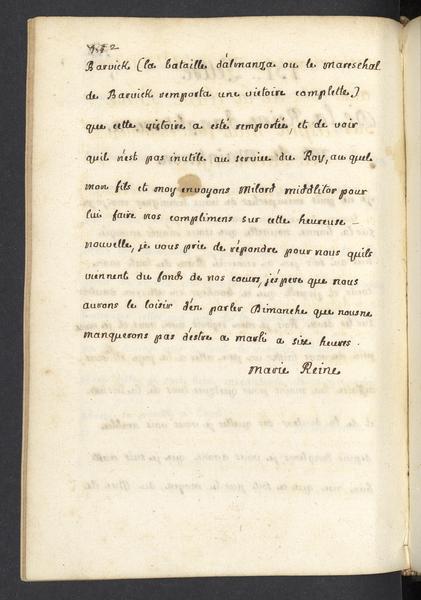 112
Barvick (la bataille d'almanza ou le mareschal
de Barvick remporta une victoire complette.)
que cette victoire a esté remportée, et de voir
quil n'est pas inutile au service du Roy, au quel
mon fils et moy envoyons milord middlitor pour
lui faire nos complimens sur cette heureuse –
nouvelle, je vous prie de répondre pour nous quils
viennent du fonds de nos coeurs, j'éspere que nous
aurons le loisir d'en parler Dimanche que nous ne
manquerons pas d'estre a marli a six heures.
Marie Reine